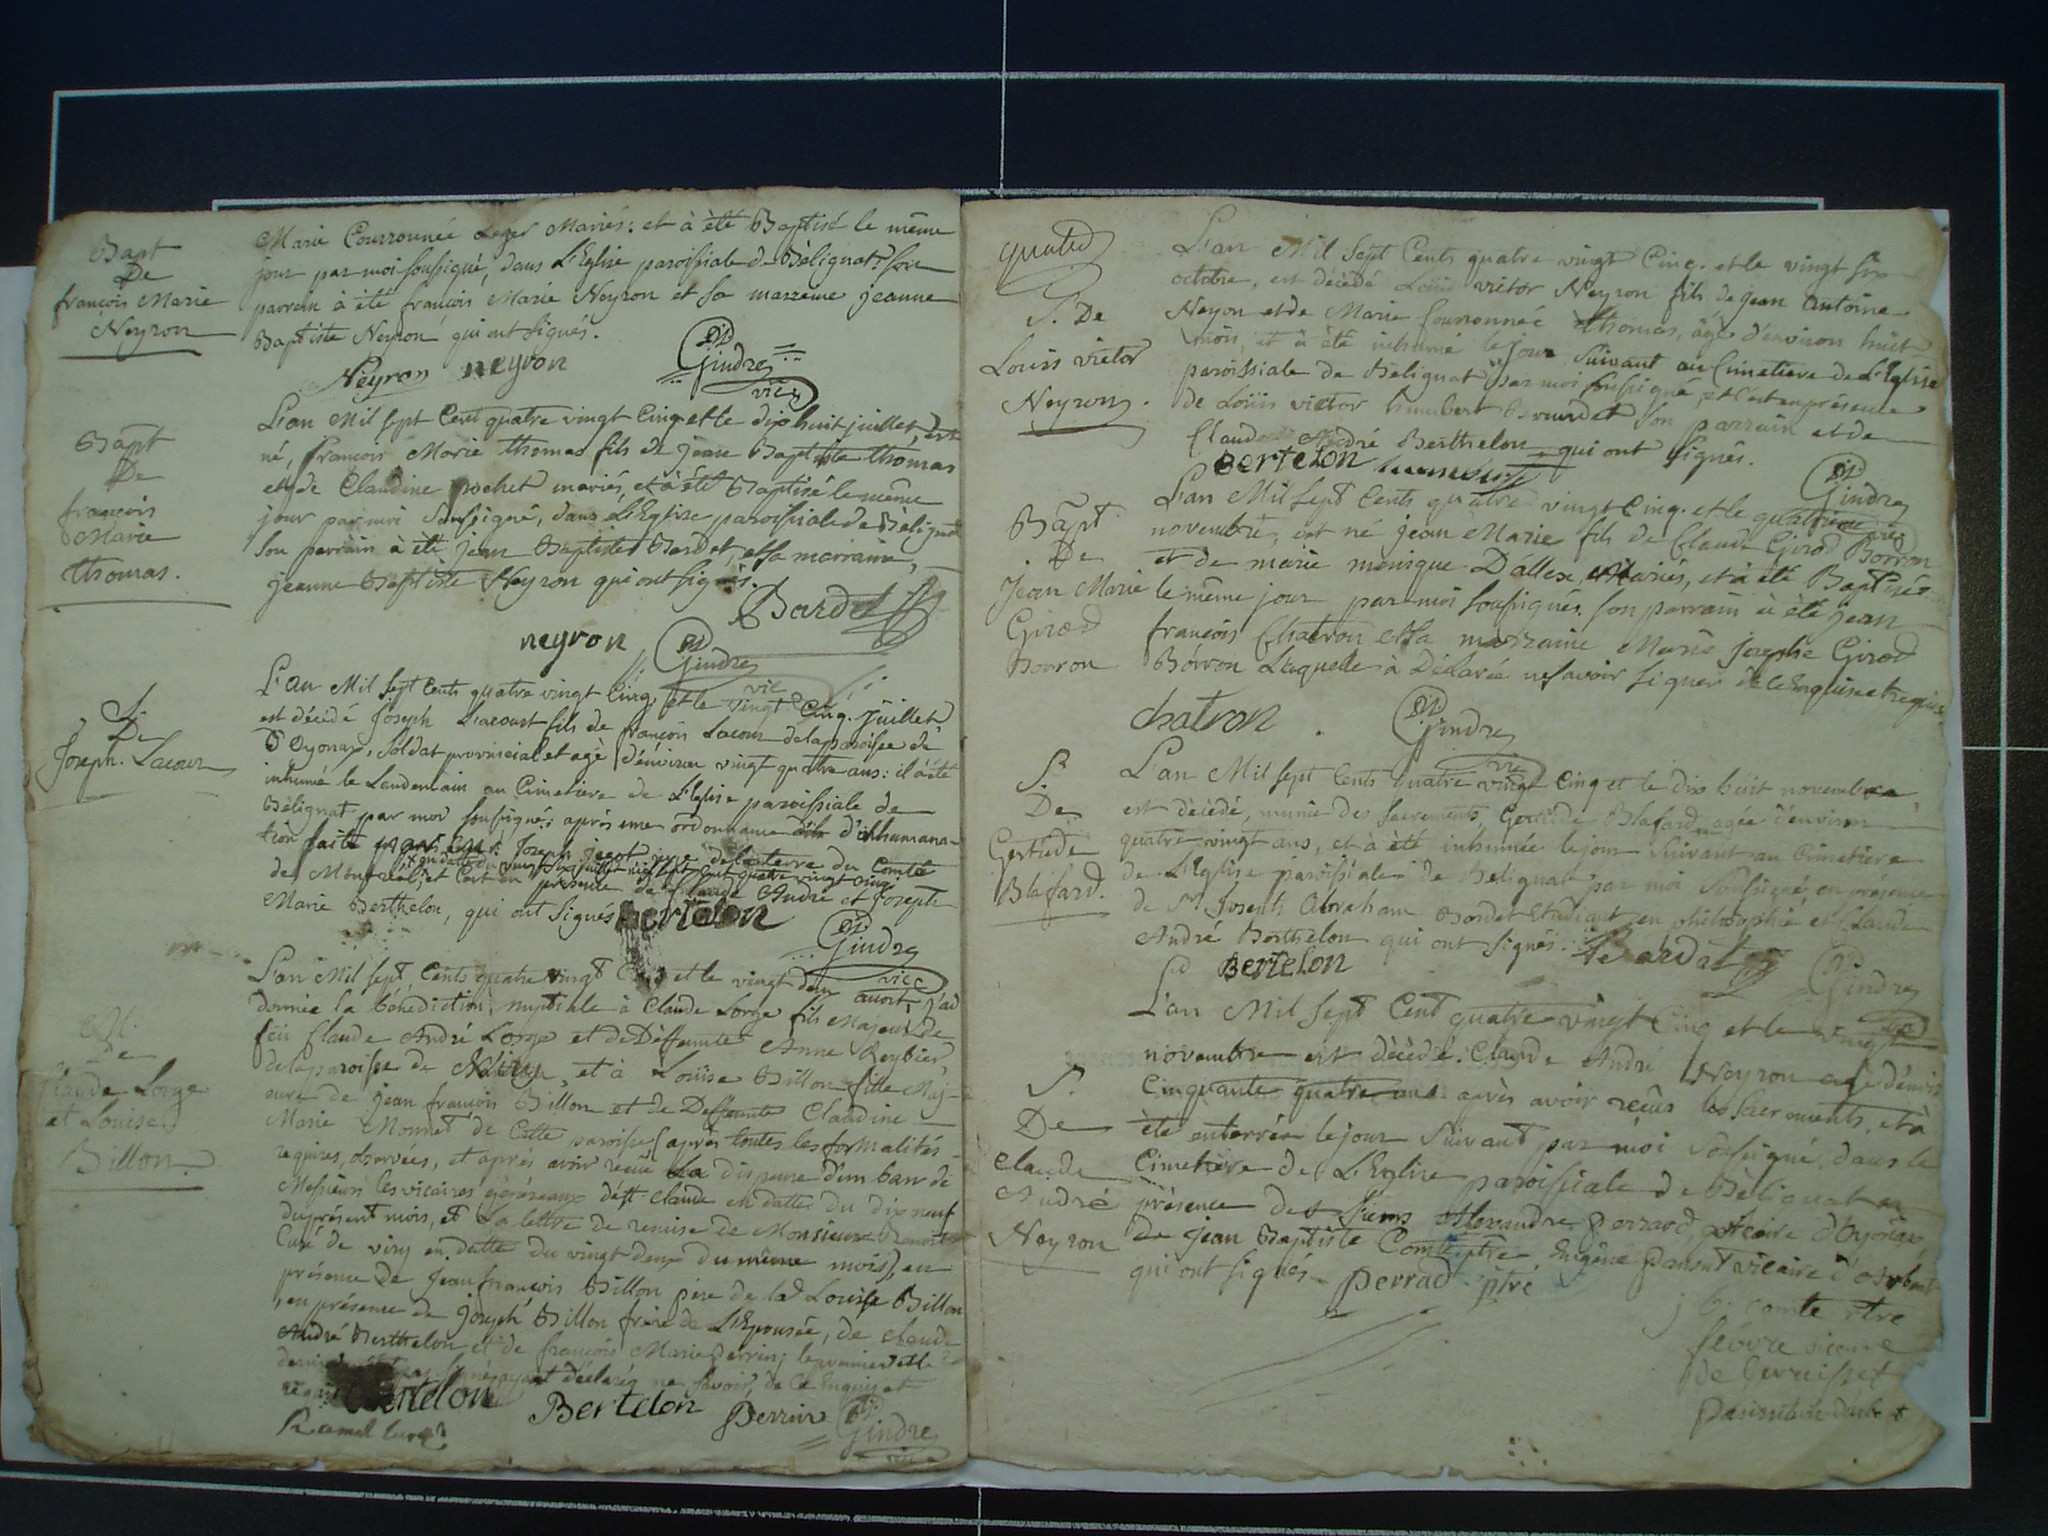 Bapt
De
françois Marie
Neyron
Marie Courronnée Leger Mariés: et à èté Baptisé le même
jour par moi soussigné, dans L'Eglise paroissiale de Bélignat: son
parrein à èté françois Marie Neyron et sa marreine jeanne
Baptiste Neyron qui ont signés.
Neyron neyron Gindre
vic
Bapt
De
françois
Marie
thomas.
L'an Mil sept Cent quatre vingt Cinq et le dix huit juillet, est
né, françois Marie thomas fils de jean Baptiste thomas
et de Claudine pochet mariés, et à été Baptisé le même
jour par moi soussigné, dans L'Eglise paroissiale de Bélignat
son parrain à èté jean Baptiste Bardet, et sa marraine,
jeanne Baptiste Neyron qui ont signés.
Bardet
neyron Gindre
vic
S.
De
Joseph. Lacour
L'an Mil sept Cents quatre vingt Cinq, et le vingt Cinq. juillet
est décédé joseph Lacour fils de françois Lacour de la paroisse de
D'Oyonax, soldat provincial et agé d'énviron vingt quatre ans: il à été
inhumé le Landemain au Cimetiere de L'Eglise paroissiale de
Bélignat par moi soussigné; après une ordonnance d'inhumana-
tion faite Joseph juge de la terre du Comté
en datte du vingt six juillet mil sept cent quatre vingt cinq
de Montréal; et C'est en présence de claude André et Joseph
Marie Berthelon, qui ont signés Bertelon
Gindre
vic
M.
de
Claude Lorge
et Louise
Billon.
L'an Mil sept Cents quatre vingt Cinq et le vingt deux aoust j'ai
donnée la bénédiction nuptiale à Claude Lorge fils Majeur de
feu Claude André Lorge et de Deffunte Anne Reybier
de la paroisse de et à Louïse Billon fille Maj-
eure de jean françois Billon et de Deffunte Claudine
Marie Monnet de Cette paroisse (après toutes les formalités
requises, observées, et après avoir recüe La dispense d'un ban de
Messieurs les vicaires généraux de St Claude en datte du dix neuf
du présent mois, et La lettre de remise de Monsieur
Curé de viry en datte du vingt deux du même mois), en
présence de Jean françois Billon père de lad. Louise Billon
, en présence de joseph Billon frère de L'Epousée, de claude
André Berthelon et de françois Marie perrin; le premier et le
ayant déclarés ne savoir, de Ce Enquis et
requis Bertelon Bertelon perrin Gindre
Ramel curé vic
quated
S. De
Louis victor
Neyron.
L'an Mil Sept Cents quatre vingt Cinq. et le vingt six
octobre, est décédé Loüis victor Neyron fils de jean antoine
Neyon et de Marie Couronnée thomas, âgé d'environ huit
mois, et à èté inhumé le jour suivant au Cimetiere de L'Eglise
paroissiale de Belignat par moi soussigné, et C'est en présence
de Loüis victor humbert son parrain et de
Claude André Berthelon qui ont signés.
Bertelon Gindre
vic
Bapt
De
Jean Marie
Girod
Borron
L'an Mil Sept Cents quatre vingt Cinq. et le quatrieme
novembre, est né jean Marie fils de Claude Girod Borron
et de marie monique Dallex, Mariés, et à été Baptisés
le même jour par moi soussignés. son parrain à èté jean
françois Chatron et sa marraine Marie Josephe Girod
Bórron Laquelle à Déclarée ne savoir signer de Ce enquise et requise
chatron. Gindre
vic
S.
De
Gertrude
Blafard.
L'an Mil sept Cents quatre vingt Cinq et le dix huit novembre
est décédé, munie des sacrements, Gertrude Blafard agée d'énviron
quatre vingt ans, et à èté inhumée le jour suivant au Cimetiere
de L'Eglise paroissiale de Belignat par moi soussigné, en présence
de Sr. Joseph Abraham Bardet Etudiant en philosophie, et Claude
André Berthelon qui ont signés.
Bertelon Bardet Gindre
vic
S.
De
Claude
André
Neyron
L'an Mil sept Cent quatre vingt Cinq et le vingt
novembre est décédé. Claude André Neyron agé d'énviron
Cinquante quatre ans après avoir reçus les sacrements, et à
èté enterrée le jour suivant par moi soussigné, dans le
Cimetière de L'Eglise paroissiale de Bélignat en
présence des sieurs Alexandre perraod, vicaire d'Oyonax
De jean Baptiste Comte ptre Eugêne pansut vicaire d'
qui ont signés. perrad ptré
j b. comte ptre
fevre vicaire
de